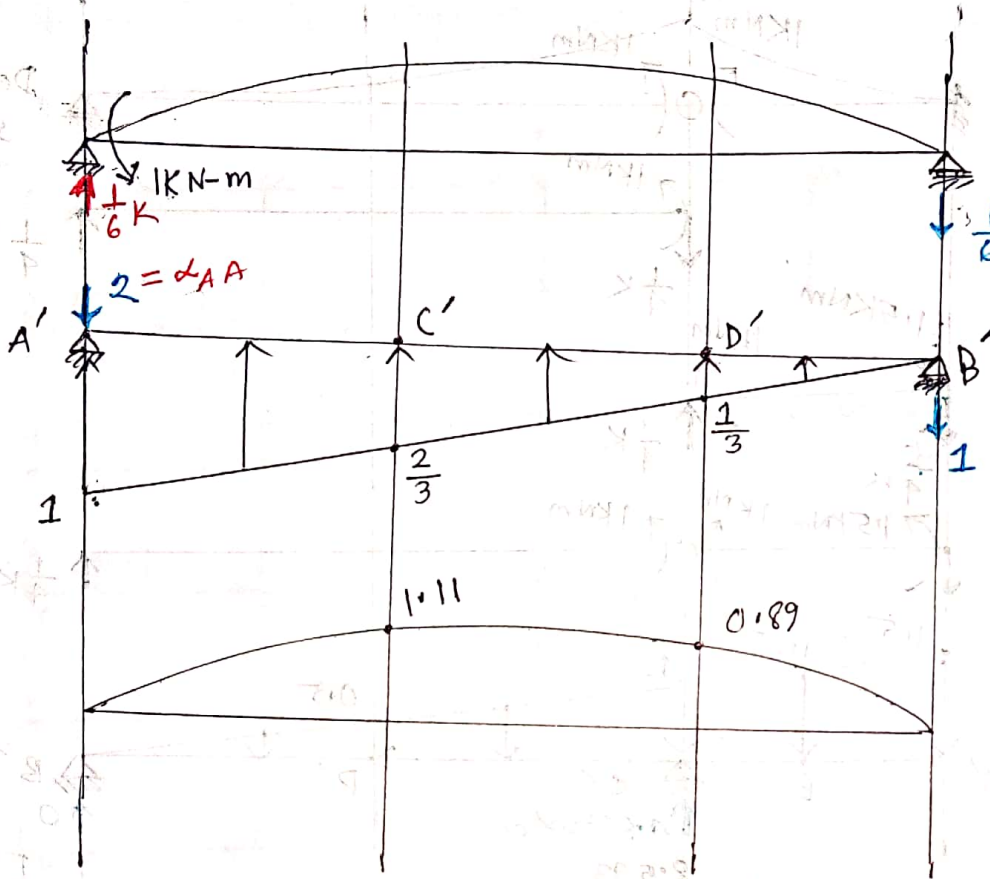 1KN-m
1/6 K
2 = αAA
A'
C'
D'
B'
1
2/3
1/3
1
1.11
0.89